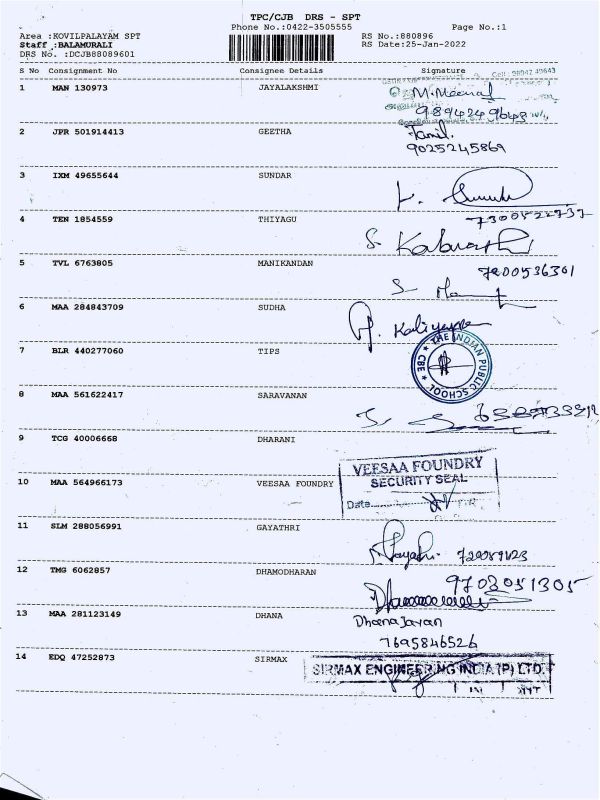 TPC/CJB DRS - SPT
Phone No.:0422-3505555 Page No.:1
Area :KOVILPALAYAM SPT RS No.:880896
Staff :BALAMURALI RS Date:25-Jan-2022
DRS No. :DCJB88089601
S No Consignment No Consignee Details Signature
Cell: 98947 49643
1 MAN 130973 JAYALAKSHMI M.Meenal
9894249643
2 JPR 501914413 GEETHA Tamil.
9025245869
3 IXM 49655644 SUNDAR
4 TEN 1854559 THIYAGU
5 TVL 6763805 MANIKANDAN 7200536301
6 MAA 284843709 SUDHA
7 BLR 440277060 TIPS THE INDIAN PUBLIC SCHOOL CBE
8 MAA 561622417 SARAVANAN
9 TCG 40006668 DHARANI
10 MAA 564966173 VEESAA FOUNDRY VEESAA FOUNDRY
SECURITY SEAL
Date
11 SLM 288056991 GAYATHRI Gayathri
12 TMG 6062857 DHAMODHARAN 9703051305
13 MAA 281123149 DHANA Dhanajayan
7695846526
14 EDQ 47252873 SIRMAX SIRMAX ENGINEERING INDIA (P) LTD.